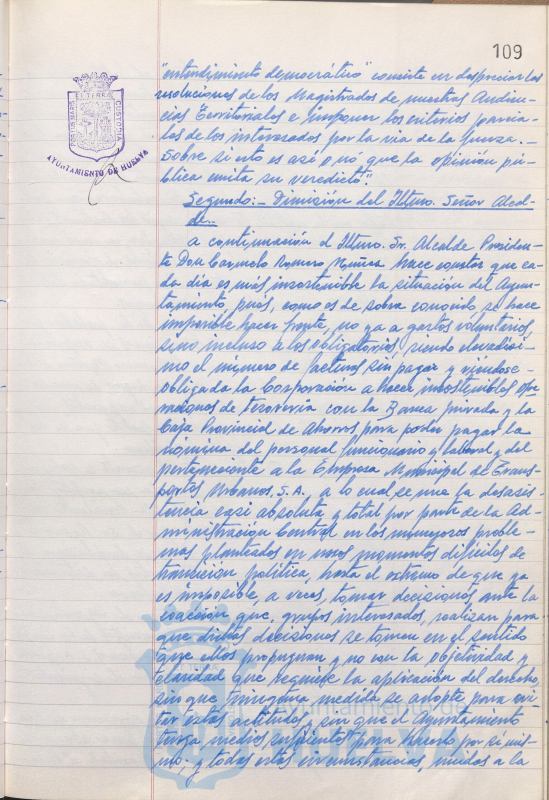 109
"entendimiento democrático" consiste en despreciar las
resoluciones de los Magistrados de nuestras Audien-
cias Territoriales e imponer los criterios parcia-
les de los interesados por la vía de la fuerza.-
Sobre si esto es así o no que la opinión pú-
blica emita su veredicto".
AYUNTAMIENTO DE HUELVA
Segundo:- Dimisión del Iltmo. Señor Alcal-
de.-
A continuación el Iltmo. Sr. Alcalde Presiden-
te Don Carmelo Romero Núñez hace constar que ca-
da día es más insostenible la situación del Ayun-
tamiento, pues, como es de sobra conocido, se hace
imposible hacer frente, no ya a gastos voluntarios,
sino incluso a los obligatorios, siendo elevadísi-
mo el número de facturas sin pagar y viéndose
obligada la Corporación a hacer insostenibles ope-
raciones de tesorería con la Banca privada y la
Caja Provincial de Ahorros para poder pagar la
nómina del personal funcionario y laboral y del
perteneciente a la Empresa Municipal de Trans-
portes Urbanos, S.A., a lo cual se une la desasis-
tencia casi absoluta y total por parte de la Ad-
ministración Central en los numerosos proble-
mas planteados en unos momentos difíciles de
transición política, hasta el extremo de que ya
es imposible, a veces, tomar decisiones ante la
coacción que, grupos interesados, realizan para
que dichas decisiones se tomen en el sentido
que ellos propugnan y no con la objetividad y
claridad que requiere la aplicación del derecho,
sin que ninguna medida se adopte para evi-
tar estas actitudes y sin que el Ayuntamiento
tenga medios suficientes para hacerlo por sí mis-
mo; y todas estas circunstancias, unidos a la